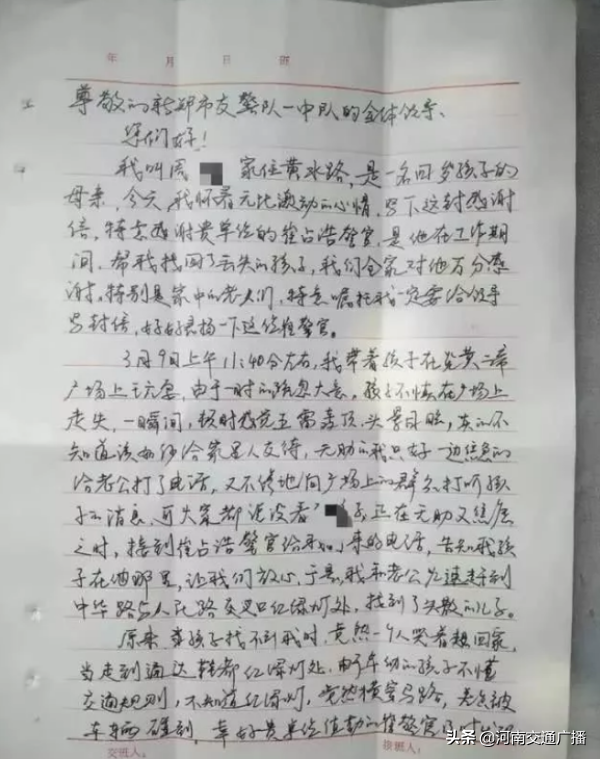 年 月 日 班
尊敬的新郑市交警队一中队的全体领导、
您们好！
我叫周 家住黄水路，是一名四岁孩子的
母亲，今天，我怀着无比激动的心情，写下这封感谢
信，特意感谢贵单位的崔占浩警官，是他在工作期
间，帮我找回了丢失的孩子，我们全家对他万分感
谢。特别是家中的老人们，特意嘱托我一定要给领导
写封信，好好表扬一下这位崔警官。
3月9日上午11:40分左右，我带着孩子在炎黄二帝
广场上玩耍，由于一时的疏忽大意，孩子不慎在广场上
走失，一瞬间，顿时感觉五雷轰顶，头晕目眩，真的不
知道该如何给家里人交待，无助的我只好一边焦急的
给老公打了电话，又不停地向广场上的群众打听孩
子的消息，可大家都说没看 正在无助又焦虑
之时，接到崔占浩警官给我 来的电话，告知我孩
子在他那里，让我们放心，于是，我和老公急速赶到
中华路与人民路交叉口红绿灯处，接到了失散的儿子。
原来，当孩子找不到我时，竟然一个人哭着想回家，
当走到 红绿灯处，由于年幼的孩子不懂
交通规则，不知道红绿灯，竟然横穿马路，差点被
车辆碰到，幸好贵单位值勤的崔警官及时
交班人：
接班人：
头条 @河南交通广播